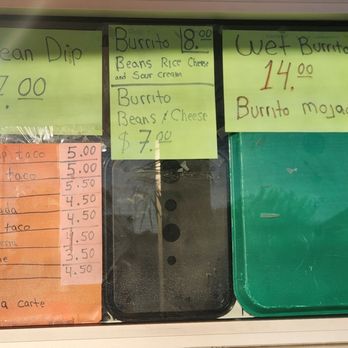 ean Dip
7.00
Burrito $8.00
Beans Rice Cheese
and Sour cream
Burrito
Beans & Cheese
$7.00
Wet Burrito
14.00
Burrito mojad
p taco 5.00
taco 5.00
5.50
4.50
ada 4.50
taco 4.50
3.50
e 4.50
a carte